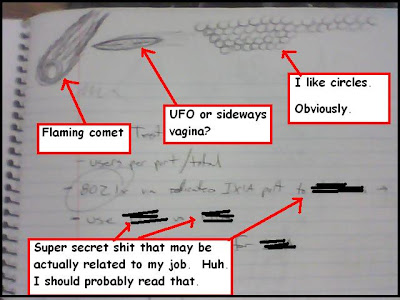 I like circles.
Obviously.
UFO or sideways
vagina?
Flaming comet
Test
- users per port/total
- 802.1x via dedicated IXIA port to
- use
Super secret shit that may be
actually related to my job. Huh.
I should probably read that.
for